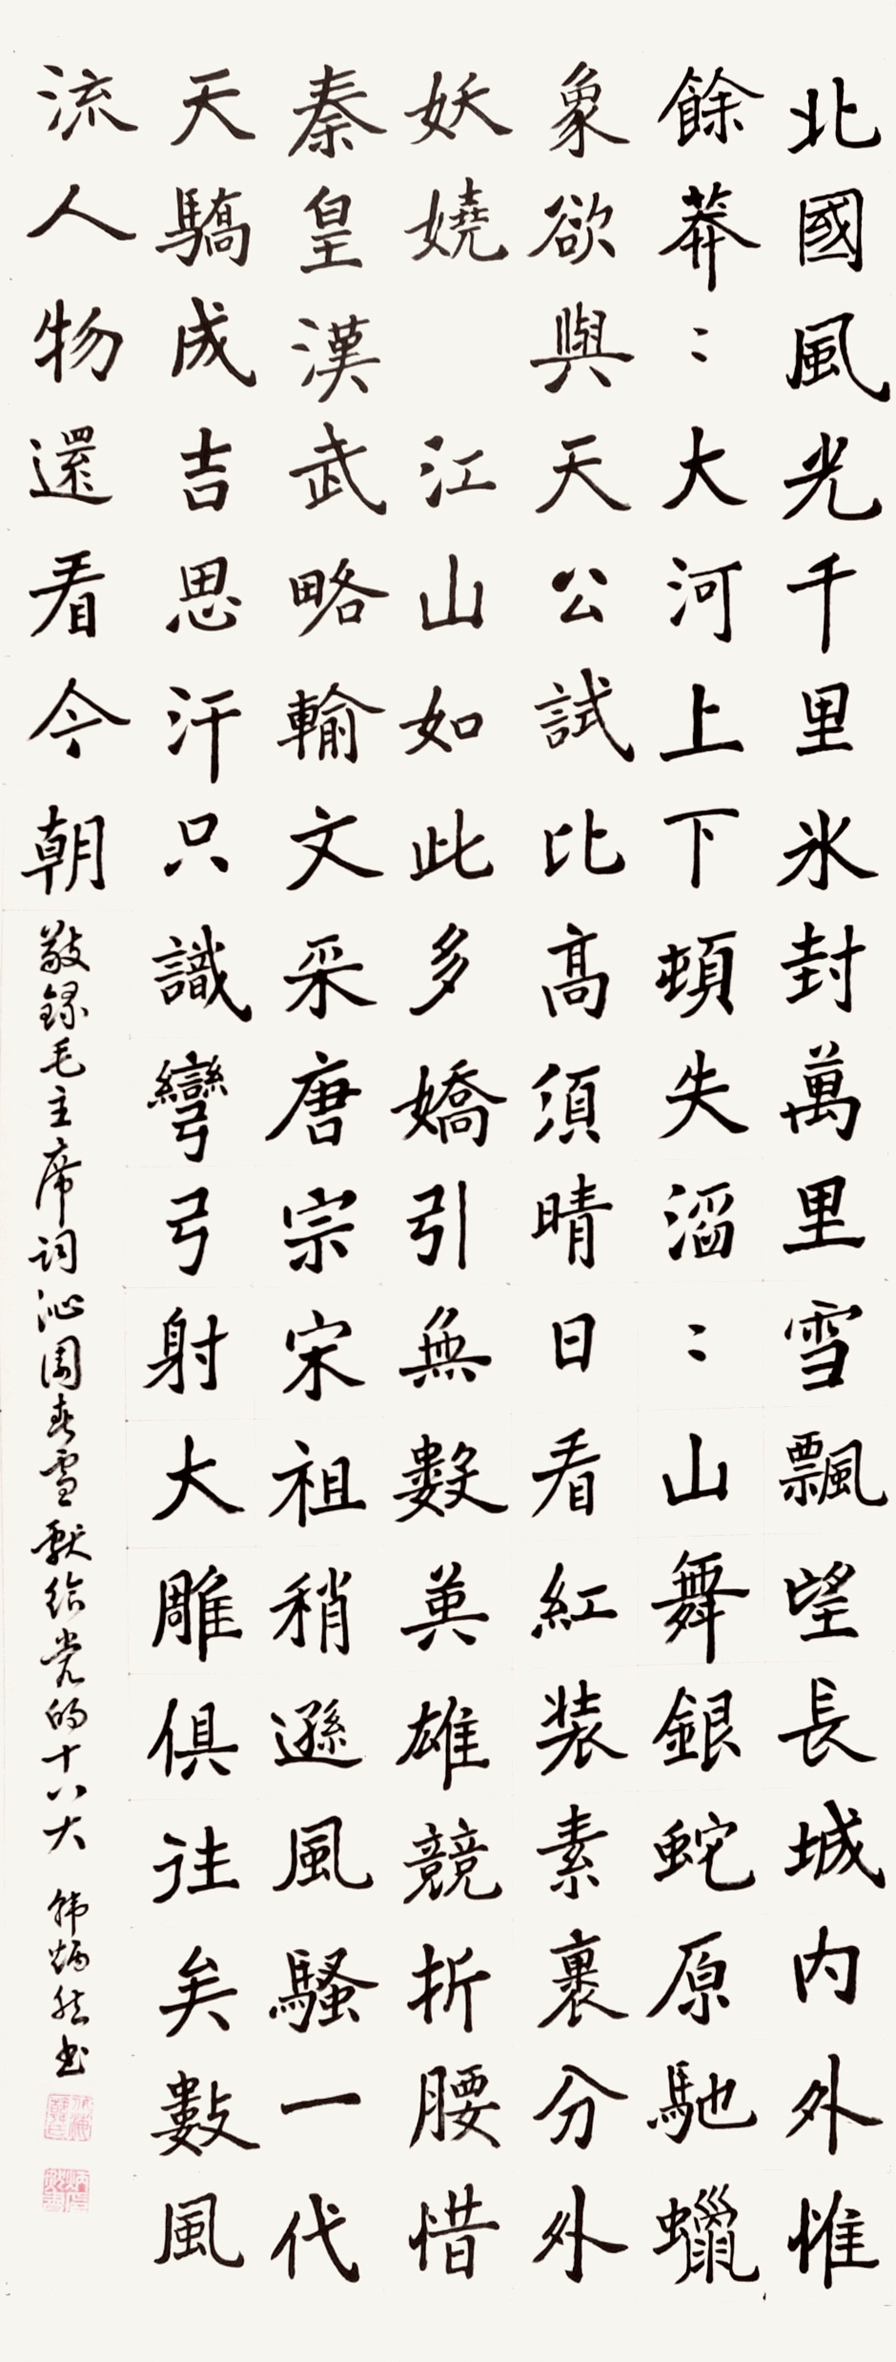 北國風光千里氷封萬里雪飄望長城内外惟
餘莽〻大河上下頓失滔〻山舞銀蛇原馳蠟
象欲與天公試比高須晴日看紅装素裹分外
妖嬈 江山如此多嬌引無數英雄競折腰惜
秦皇漢武略輸文采唐宗宋祖稍遜風騷一代
天驕成吉思汗只識彎弓射大雕俱往矣數風
流人物還看今朝
敬録毛主席词沁園春雪獻给党的十八大 韩炳然书